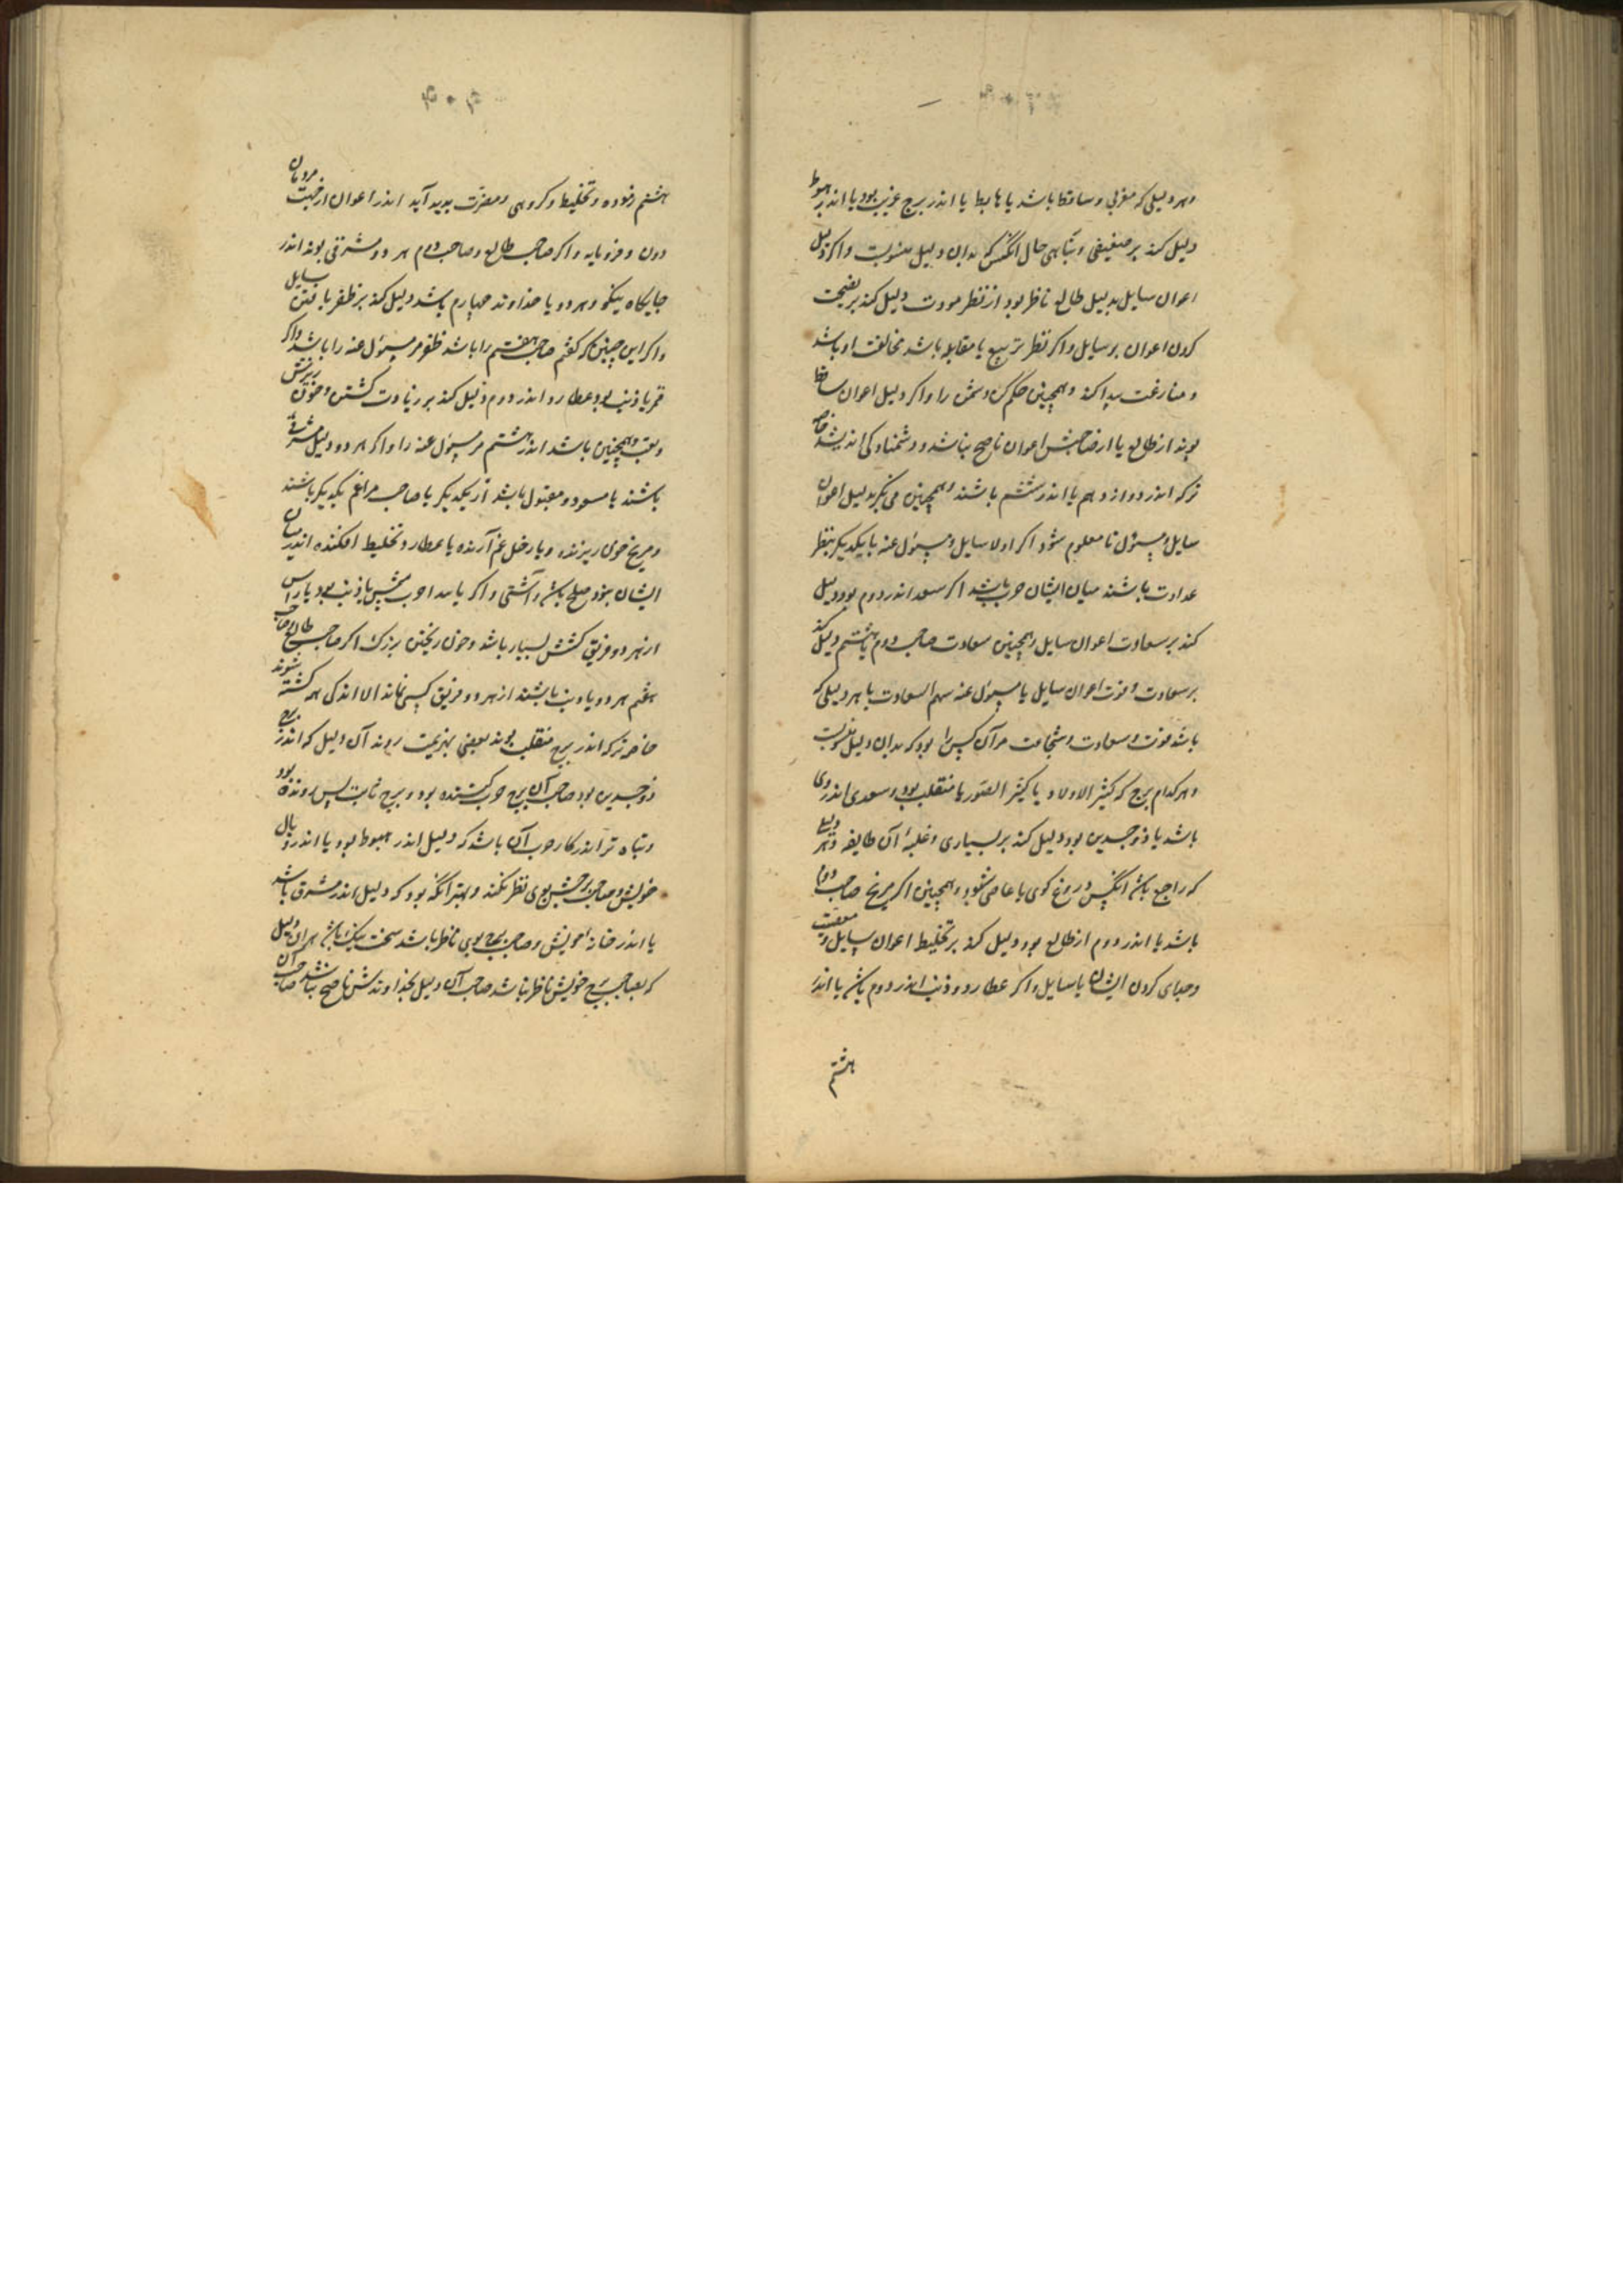 وهر دلیلی که مغربی وساقط باشد یا هابط یا اندر برج غریب بود یا اندر هبوط
دلیل کند بر ضعیفی وتباهی حال آنکس که بدان دلیل منسوبست واکر دلیل
اعوان سایل بدلیل طالع ناظر بود از نظر مودت دلیل کند بر نصیحت
کردن اعوان بر سایل واکر نظر تربیع یا مقابله باشد مخالفت او باشد
و منازعت پیدا کند وهمچنین حکم کن دشمن را واکر دلیل اعوان ساقط
بوند از طالع یا از صاحبش اعوان ناصح نباشد و دشمناوکی اندیشد خاصه
ترکه اندر دوازدهم یا اندر ششم باشند وهمچنین می نکر بدلیل اعوان
سایل ومسؤل تا معلوم شود اکر اولا سایل ومسؤل عنه با یکدیکر بنظر
عداوت باشند میان ایشان حرب باشد اکر سعد اندر دوم بود دلیل
کند بر سعادت اعوان سایل وهمچنین سعادت صاحب دوم یا هشتم دلیل کند
بر سعادت وقوت اعوان سایل یا مسؤل عنه سهم السعادت با هر دلیلی که
باشد قوت وسعادت وشجاعت مر آن کس را بود که بدان دلیل منسوبست
وهر کدام برج که کثیر الاولاد یا کثیر الصور یا منقلب بود وسعدی اندر وی
باشد یا ذوجسدین بود دلیل کند بر بسیاری وغلبهٔ آن طایفه وهر دلیلی
که راجع باشد آنکس دروغ کوی یا عاصی شود وهمچنین اکر مریخ صاحب دوم
باشد یا اندر دوم از طالع بود دلیل کند بر تخلیط اعوان سایل و معصیت
وجدای کردن ایشان با سایل واکر عطارد وذنب اندر دوم باشد یا اندر
هشتم
هشتم بوده وتخلیط وکروهی ومضرت پدید آید اندر اعوان از جهت مردمان
دون وفرومایه واکر صاحب طالع وصاحب دوم هر دو مشرقی بوند اندر
جایکاه نیکو وهر دو با خداوند چهارم باشد دلیل کند بر ظفر یافتن سایل
واکر این چنین که کفتم صاحب هفتم را باشد ظفر مر مسؤل عنه را باشد واکر
قمر با ذنب بود عطارد اندر دوم دلیل کند بر زیادت کشتن وخون ریزش
وتعب وهمچنین باشد اندر هشتم مر مسؤل عنه را واکر هر دو دلیل مشرقی
باشند یا مسعود ومقبول باشد از یکدیکر یا صاحب مراغم یکدیکر باشند
ومریخ خون ریزنده ویا زحل غم آرنده یا عطارد تخلیط افکننده اندر میان
ایشان بود صلح باشد وآشتی واکر یا صاحب شمس با ذنب بود یا راس
از هر دو فریق کشش بسیار باشد وخون ریختن بزرک اکر صاحب طالع وصاحب
هفتم هر دو با ذنب باشند از هر دو فریق کسی نماند الا اندکی همه کشته شوند
خاصه ترکه اندر برج منقلب بوند بعضی بهزیمت روند آن دلیل که اندر برج
ذوجسدین بود صاحب آن برج حرب کننده بود وبرج ثابت پس رونده بود
وتباه تر اندر کار حرب آن باشد که دلیل اندر هبوط بود یا اندر وبال
خویش وصاحب برجش بوی نظر نکند وبهتر آنکه بود که دلیل اندر مشرق باشد
یا اندر خانه خویش وصاحب برج بوی ناظر باشد سخت نیک باشد هر آن دلیل
که بصاحب برج خویش ناظر نباشد صاحب آن دلیل بخداوندش ناصح نباشد صاحب آن